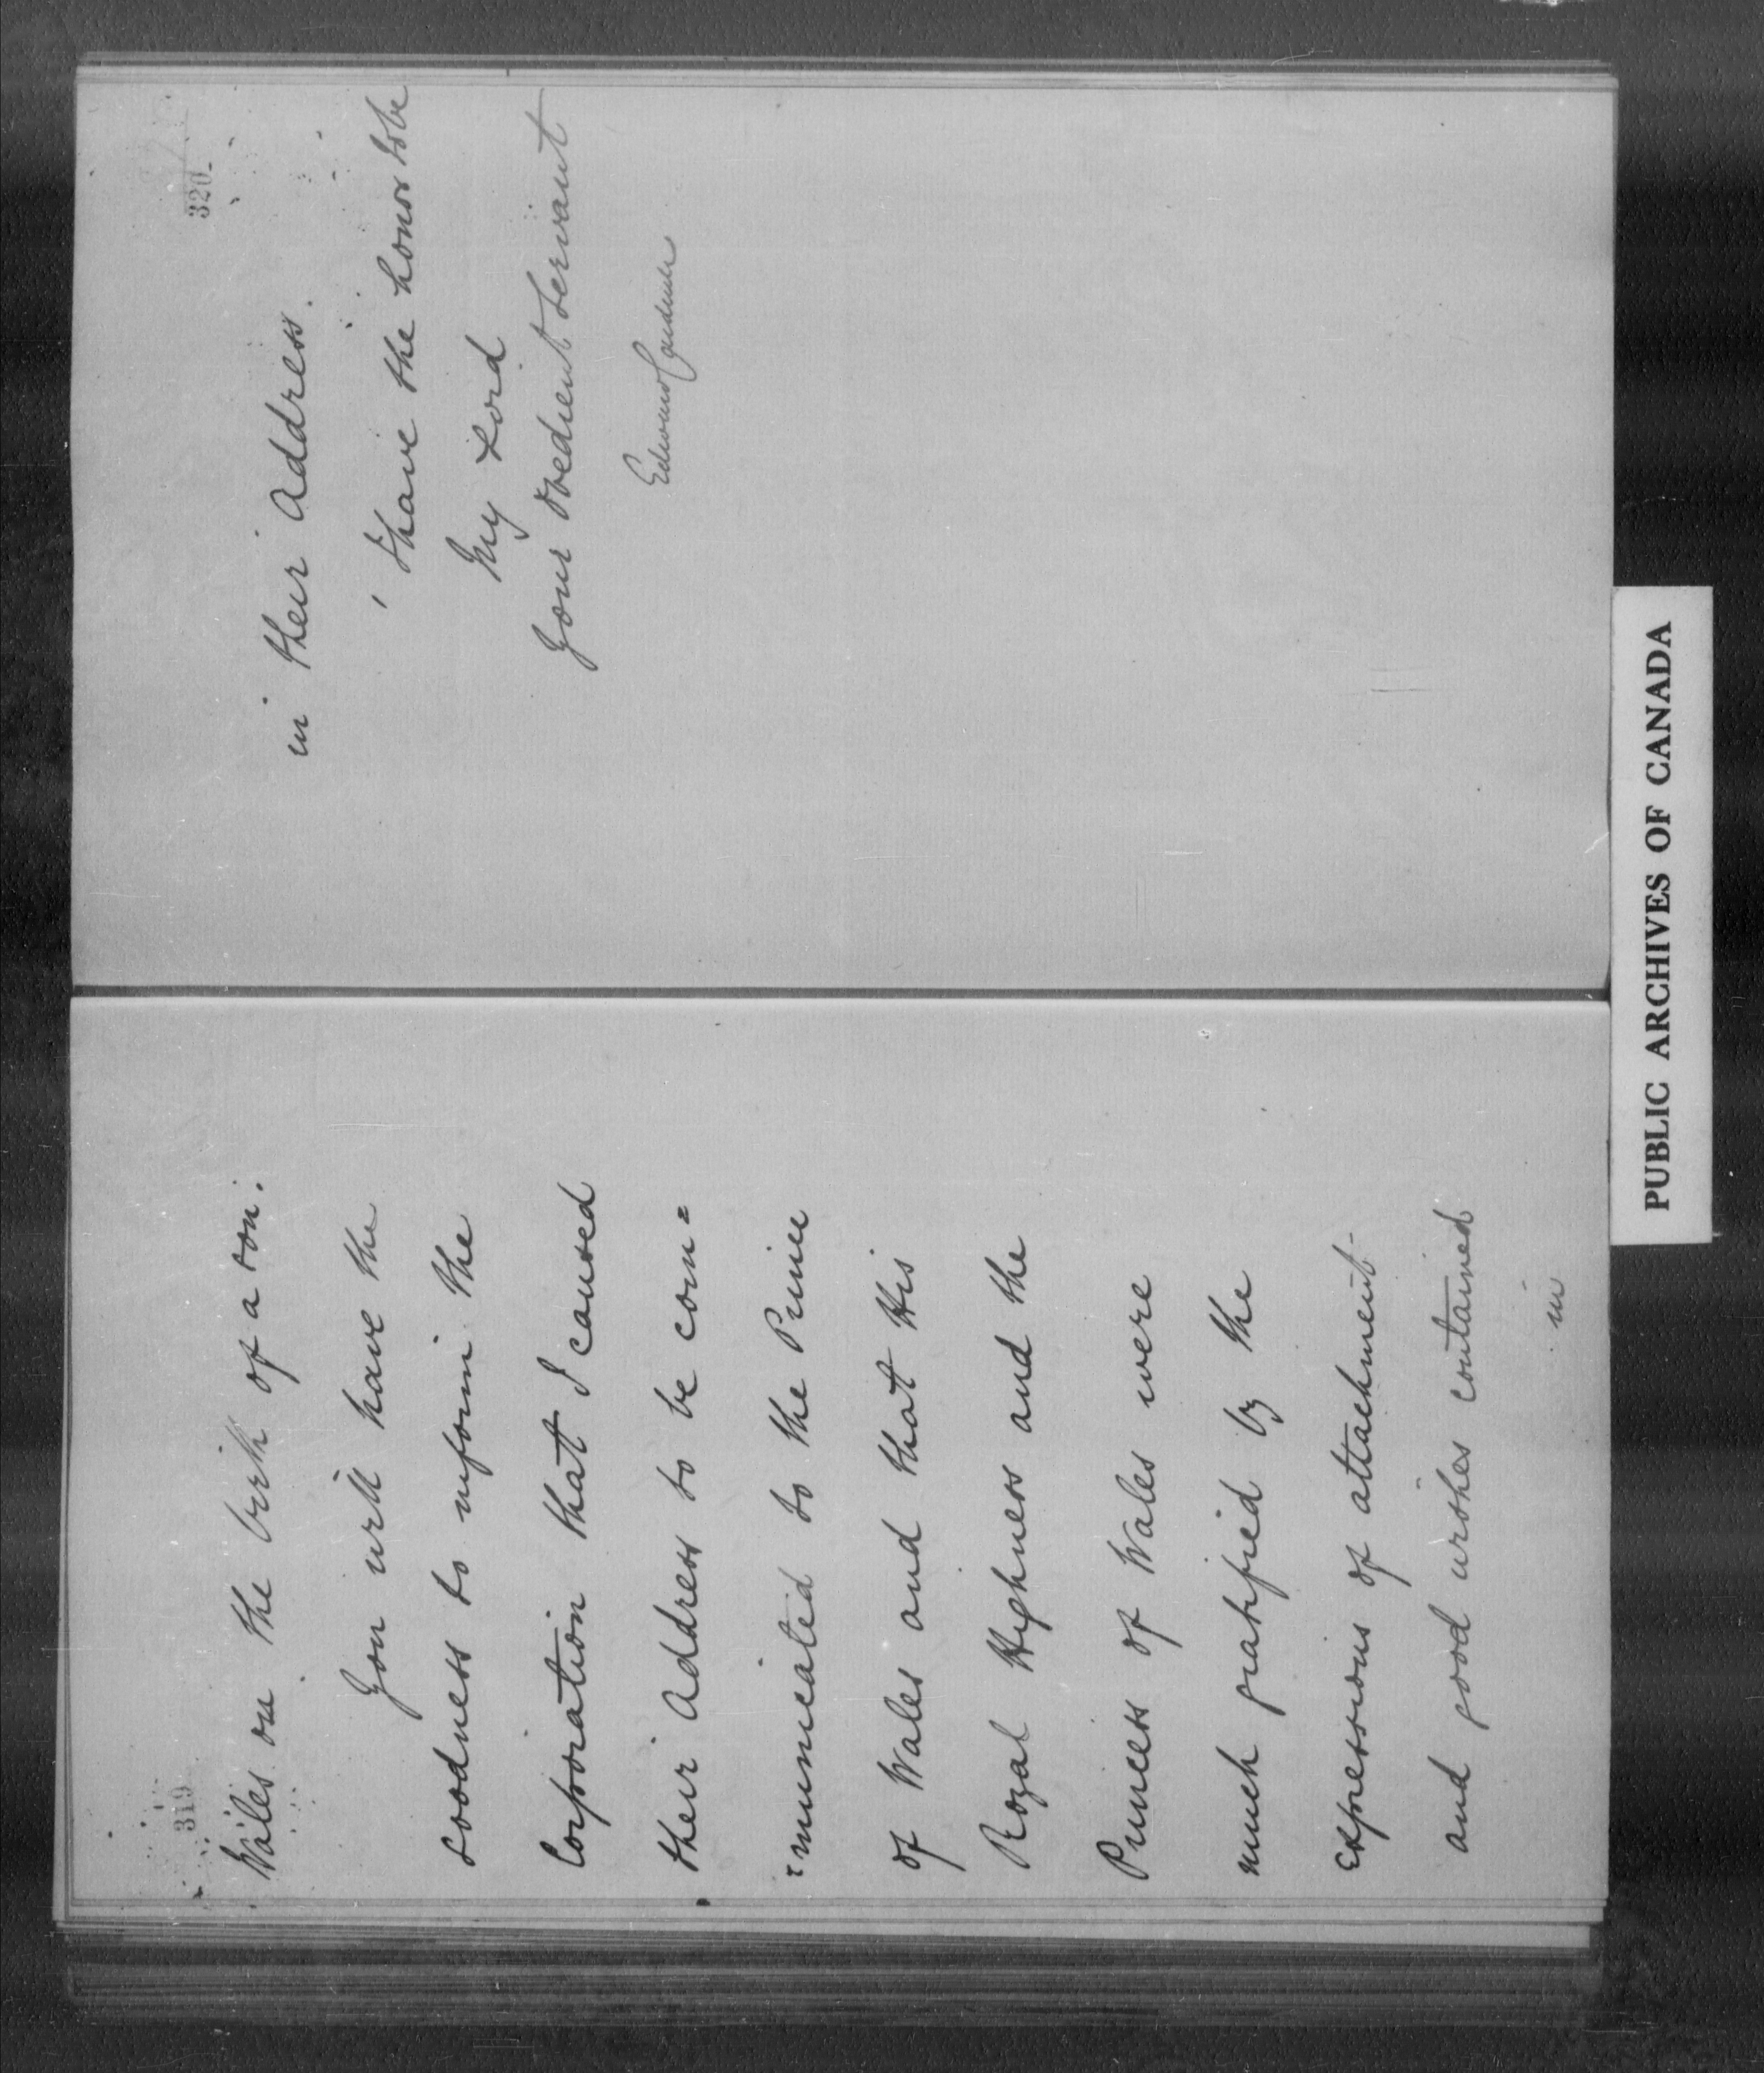 319
Wales on the birth of a son.
You will have the
goodness to inform the
Corporation that I caused
their Address to be com=
=municated to the Prince
of Wales and that His
Royal Highness and the
Princess of Wales were
much gratified by the
expressions of attachment
and good wishes contained
in
320
in their Address.
I have the honor to be
My Lord
Your obedient Servant
Edward Cardwell
PUBLIC ARCHIVES OF CANADA